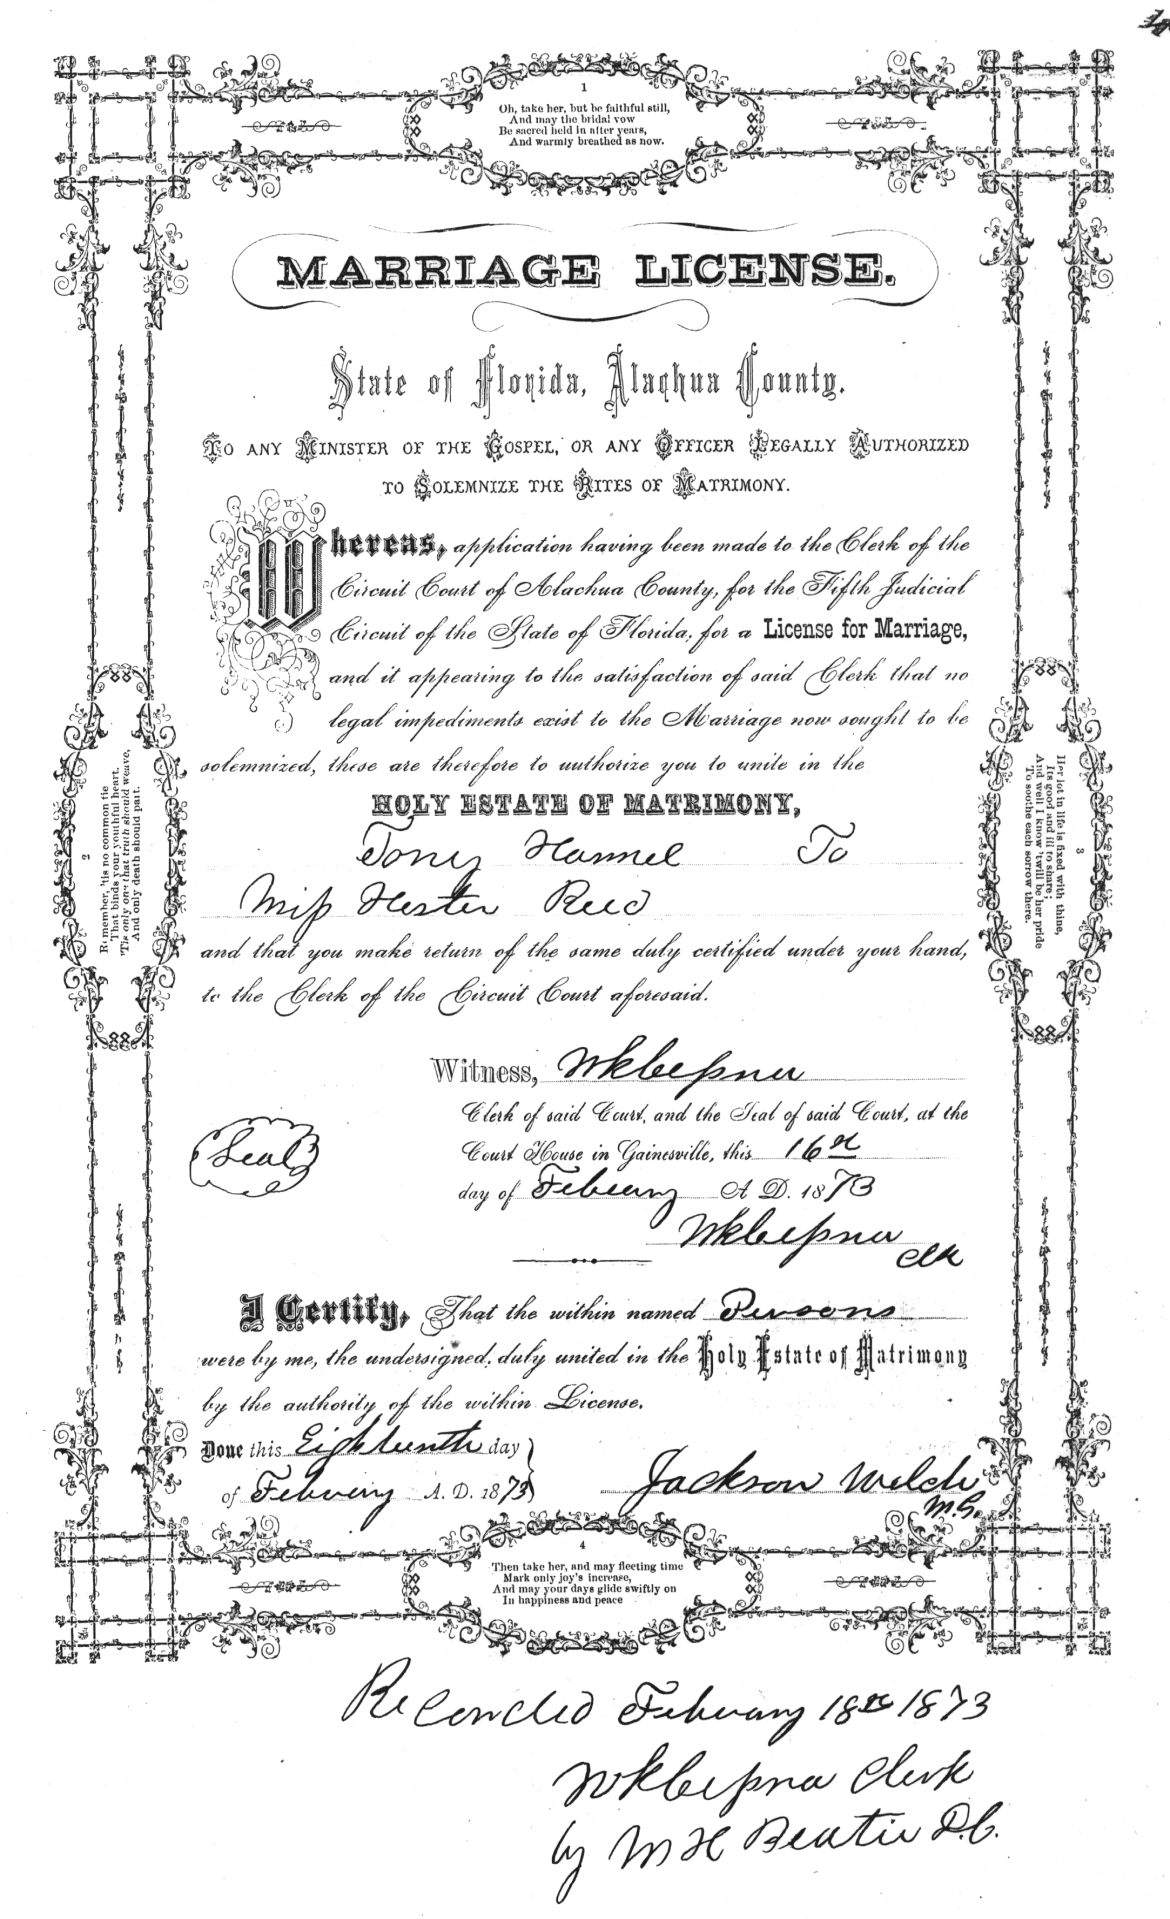 1
Oh, take her, but be faithful still,
And may the bridal vow
Be sacred held in after years,
And warmly breathed as now.
MARRIAGE LICENSE.
State of Florida, Alachua County.
TO ANY MINISTER OF THE GOSPEL, OR ANY OFFICER LEGALLY AUTHORIZED
TO SOLEMNIZE THE RITES OF MATRIMONY.
Whereas, application having been made to the Clerk of the
Circuit Court of Alachua County, for the Fifth Judicial
Circuit of the State of Florida, for a License for Marriage,
and it appearing to the satisfaction of said Clerk that no
legal impediments exist to the Marriage now sought to be
solemnized, these are therefore to authorize you to unite in the
HOLY ESTATE OF MATRIMONY,
Tony Hammel To
Miss Hester Reed
and that you make return of the same duly certified under your hand,
to the Clerk of the Circuit Court aforesaid.
2
Remember, 'tis no common tie
That binds your youthful heart.
'Tis only one that truth should weave,
And only death should part.
3
Her lot in life is fixed with thine,
Its good and ill to share;
And well I know 'twill be her pride
To soothe each sorrow there.
Witness, WK Cessna
Clerk of said Court, and the Seal of said Court, at the
Seal
Court House in Gainesville, this 16th
day of February A. D. 1873
WK Cessna
Clk
I Certify, That the within named Persons
were by me, the undersigned, duly united in the Holy Estate of Matrimony
by the authority of the within License.
Done this Eighteenth day
of February A. D. 1873
Jackson Welch
M.G.
4
Then take her, and may fleeting time
Mark only joy's increase,
And may your days glide swiftly on
In happiness and peace
Recorded February 18th 1873
WK Cessna Clerk
by M H Beatie D.C.